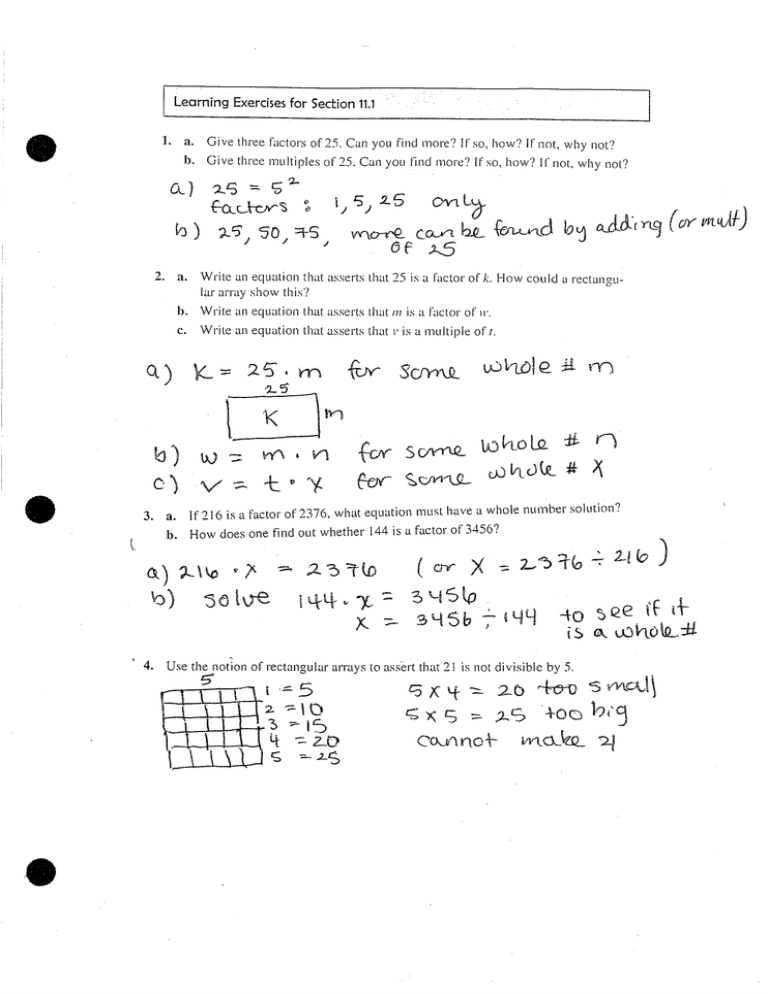 Learning Exercises for Section 11.1
1. a. Give three factors of 25. Can you find more? If so, how? If not, why not?
b. Give three multiples of 25. Can you find more? If so, how? If not, why not?
a) 25 = 5²
factors : 1, 5, 25 only
b) 25, 50, 75, more can be found by adding (or mult)
of 25
2. a. Write an equation that asserts that 25 is a factor of k. How could a rectangu-
lar array show this?
b. Write an equation that asserts that m is a factor of w.
c. Write an equation that asserts that v is a multiple of t.
a) K = 25 · m for some whole # m
25
K m
b) w = m · n for some whole # n
c) v = t · x for some whole # x
3. a. If 216 is a factor of 2376, what equation must have a whole number solution?
b. How does one find out whether 144 is a factor of 3456?
a) 216 · x = 2376 (or x = 2376 ÷ 216)
b) solve 144 · x = 3456
x = 3456 ÷ 144 to see if it
is a whole #
4. Use the notion of rectangular arrays to assert that 21 is not divisible by 5.
5
1 = 5 5 x 4 = 20 too small
2 = 10 5 x 5 = 25 too big
3 = 15 cannot make 21
4 = 20
5 = 25